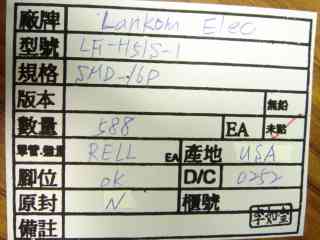 廠牌 Lankom Elec
型號 LF-H51S-1
規格 SMD-16P
版本 無鉛
數量 588 EA 未點
單管·盤重 RELL EA 產地 USA
腳位 OK D/C 0252
原封 N 櫃號
備註